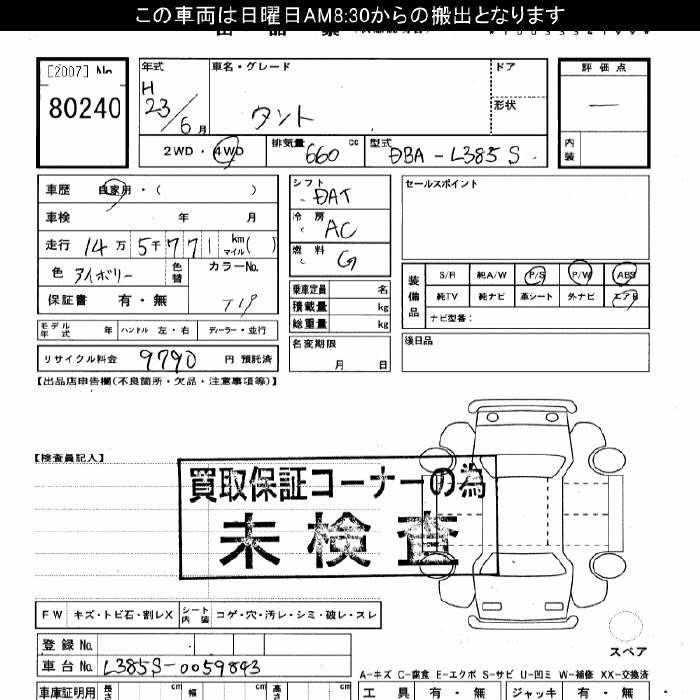 この車両は日曜日AM8:30からの搬出となります
[2007] No
80240
年式
H
23/6 月
車名・グレード
タント
ドア
形状
評価点
―
内装
2WD・4WD
排気量 660 cc
型式 DBA - L385S
車歴 自家用・( )
車検 年 月
走行 14万 5千 771 km マイル( )
色 アイボリー 色替
カラーNo. T19
保証書 有・無
シフト DAT
冷房 AC
燃料 G
乗車定員 名
積載量 kg
総重量 kg
セールスポイント
装備品
S/R 純A/W P/S P/W ABS
純TV 純ナビ 革シート 外ナビ エアB
ナビ型番:
モデル年式 年 ハンドル 左・右 ディーラー・並行
名変期限
月 日
後日品
リサイクル料金 9790 円 預託済
【出品店申告欄(不良箇所・欠品・注意事項等)】
【検査員記入】
買取保証コーナーの為
未検査
FW キズ・トビ石・割レX シート内装 コゲ・穴・汚レ・シミ・破レ・スレ
スペア
登録 No.
車台 No. L385S-0059843
A-キズ C-腐食 E-エクボ S-サビ U-凹ミ W-補修 XX-交換済
車庫証明用 長さ cm 幅 cm 高さ cm
工具 有・無 ジャッキ 有・無